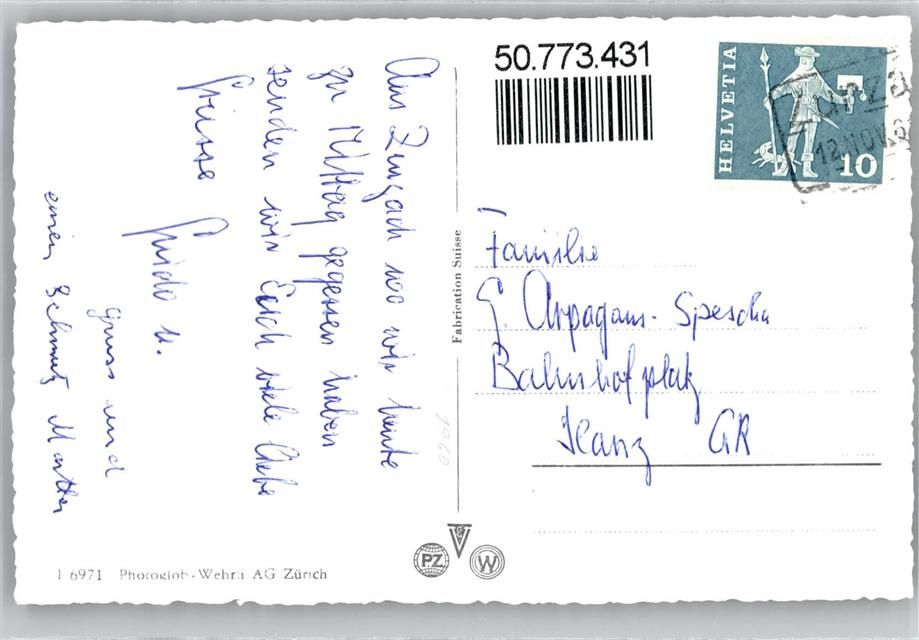 Aus Zurzach wo wir heute
zu Mittag gegessen haben
senden wir Euch viele liebe
Grüsse Guido u.
Gruss und
einen Schmutz Martha
I 6971 Photoglob-Wehrli AG Zürich
Fabrication Suisse
1960
50.773.431
HELVETIA
10
Zurza
12.NOV.6
Familie
G. Arpagaus-Spescha
Bahnhofplatz
Ilanz GR
PZ
W